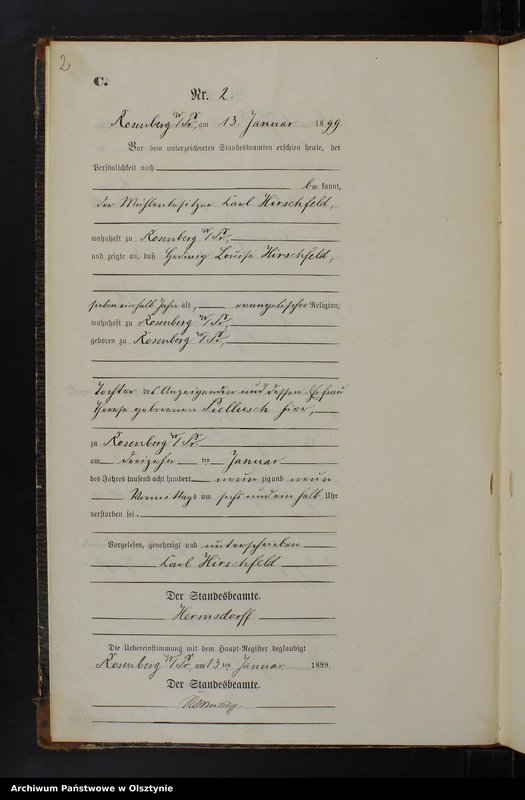 2
C.
Nr. 2.
Rosenberg W/Pr., am 13. Januar 1899.
Vor dem unterzeichneten Standesbeamten erschien heute, der
Persönlichkeit nach
be kannt,
der Mühlenbesitzer Carl Hirschfeld,
wohnhaft zu Rosenberg W/Pr.,
und zeigte an, daß Hedwig Louise Hirschfeld,
sieben einhalb Jahre alt, evangelischer Religion,
wohnhaft zu Rosenberg W/Pr.,
geboren zu Rosenberg W/Pr.,
Tochter des Anzeigenden und dessen Ehefrau
Therese geborenen hier,
zu Rosenberg W/Pr.
am dreizehn ten Januar
des Jahres tausend acht hundert neun zig und neun
Vormittags um sechs und ein halb Uhr
verstorben sei.
Vorgelesen, genehmigt und unterschrieben
Carl Hirschfeld
Der Standesbeamte.
Hermsdorff
Die Uebereinstimmung mit dem Haupt-Register beglaubigt
Rosenberg W/Pr, am 13 ten Januar 1899.
Der Standesbeamte.
Archiwum Państwowe w Olsztynie